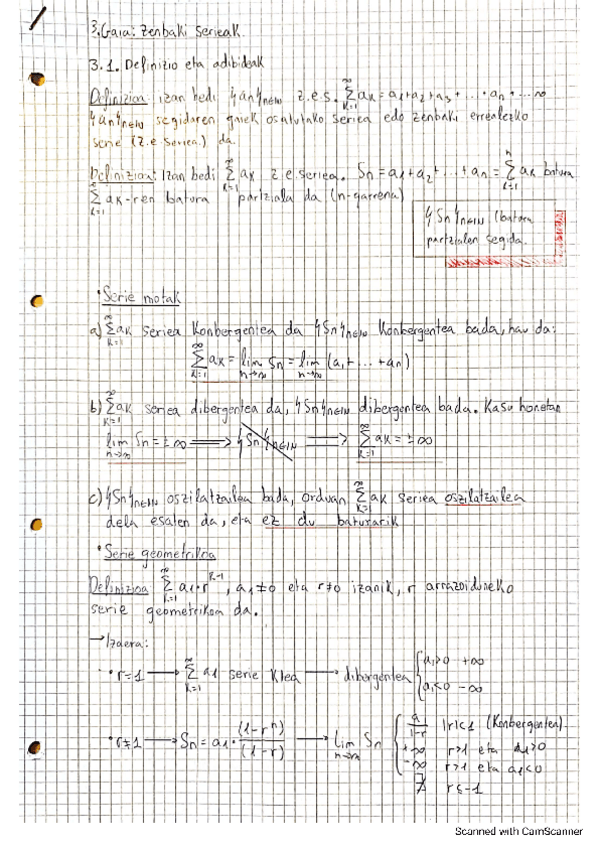 3.Gaia: Zenbaki serieak
3.1. Definizio eta adibideak
Definizioa: izan bedi {an}n∈IN z.e.s. ∑_{k=1}^{∞} ak = a1+a2+a3+...+an+...∞
{an}n∈IN segidaren gaiek osatutako seriea edo zenbaki errealezko
serie (z.e seriea.) da.
Definizioa: Izan bedi ∑_{k=1}^{∞} ak z.e.seriea. Sn = a1+a2+...+an = ∑_{k=1}^{n} ak batura
∑_{k=1}^{∞} ak-ren batura partziala da (n-garrena)
{Sn}n∈IN (batura
partzialen segida.
• Serie motak
a) ∑_{k=1}^{∞} ak seriea Konbergentea da {Sn}n∈IN Konbergentea bada, hau da:
∑_{k=1}^{∞} ak = lim_{n→∞} Sn = lim_{n→∞} (a1+...+an)
b) ∑_{k=1}^{∞} ak seriea dibergentea da, {Sn}n∈IN dibergentea bada. Kasu honetan
lim_{n→∞} Sn = ±∞ ⟹ {Sn}n∈IN ⟹ ∑_{k=1}^{∞} ak = ±∞
c) {Sn}n∈IN oszilatzailea bada, orduan ∑_{k=1}^{∞} ak seriea oszilatzailea
dela esaten da, eta ez du baturarik
• Serie geometrikoa
Definizioa ∑_{k=1}^{∞} a1·r^{k-1}, a1≠0 eta r≠0 izanik, r arrazoiduneko
serie geometrikoa da.
→ Izaera:
• r=1 → ∑_{k=1}^{∞} a1 serie Ktea → dibergentea { a1>0 +∞
a1<0 -∞
• r≠1 → Sn = a1·(1-r^n)/(1-r) → lim_{n→∞} Sn { a/(1-r) |r|<1 (Konbergentea)
+∞ r>1 eta a1>0
-∞ r>1 eta a1<0
∄ r≤-1
Scanned with CamScanner